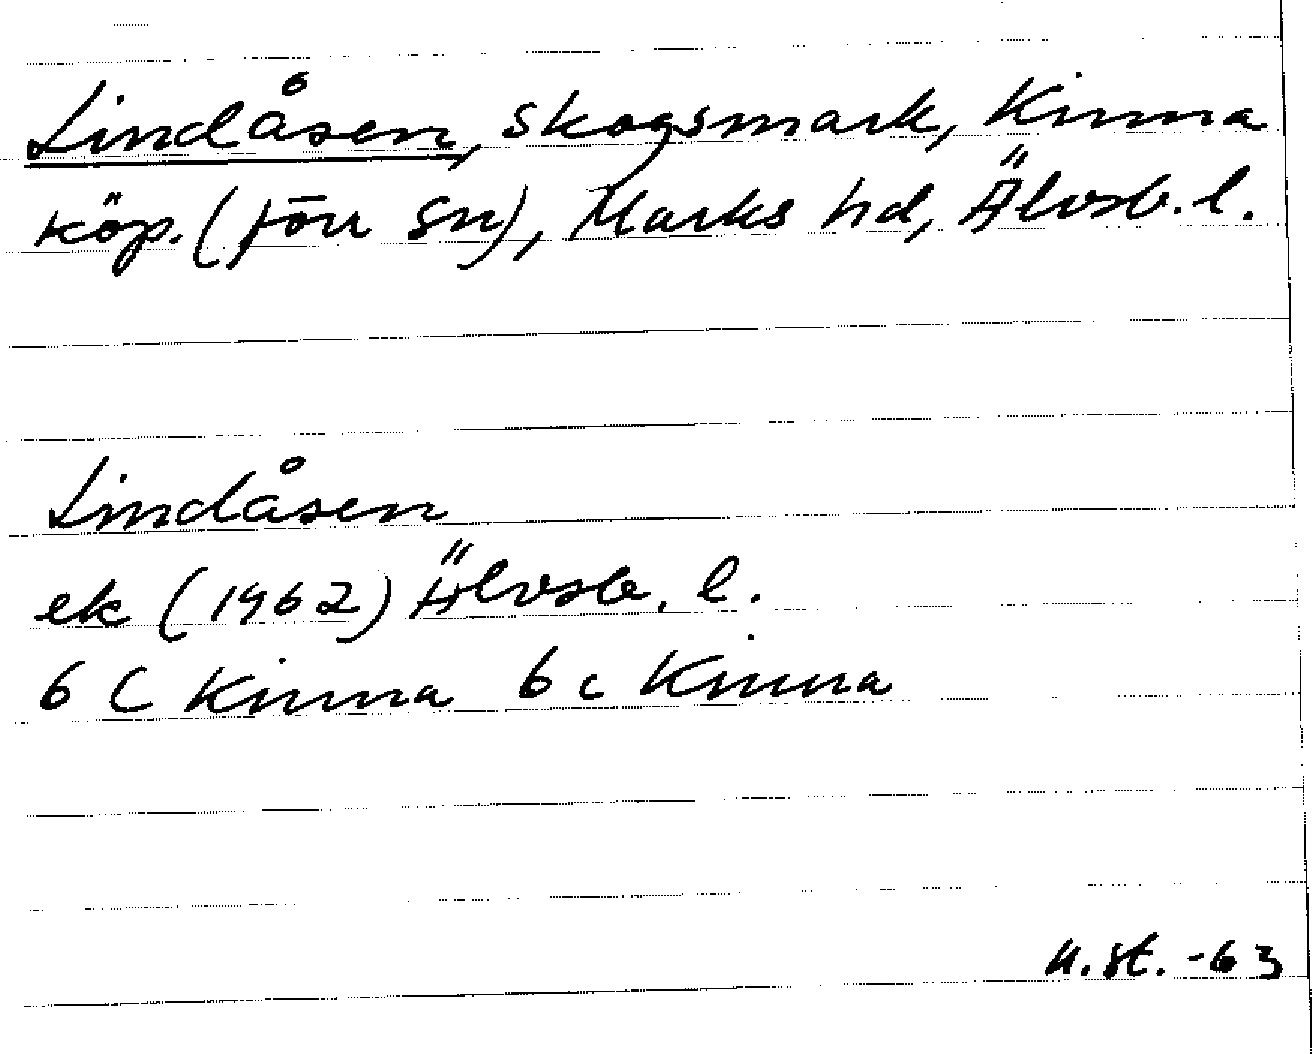 Lindåsen, skogsmark, Kinna
köp. (förr Sn), Marks hd, Älvsb. l.
Lindåsen
ek (1962) Älvsb. l.
6 C Kinna 6 c Kinna
u. st. -63